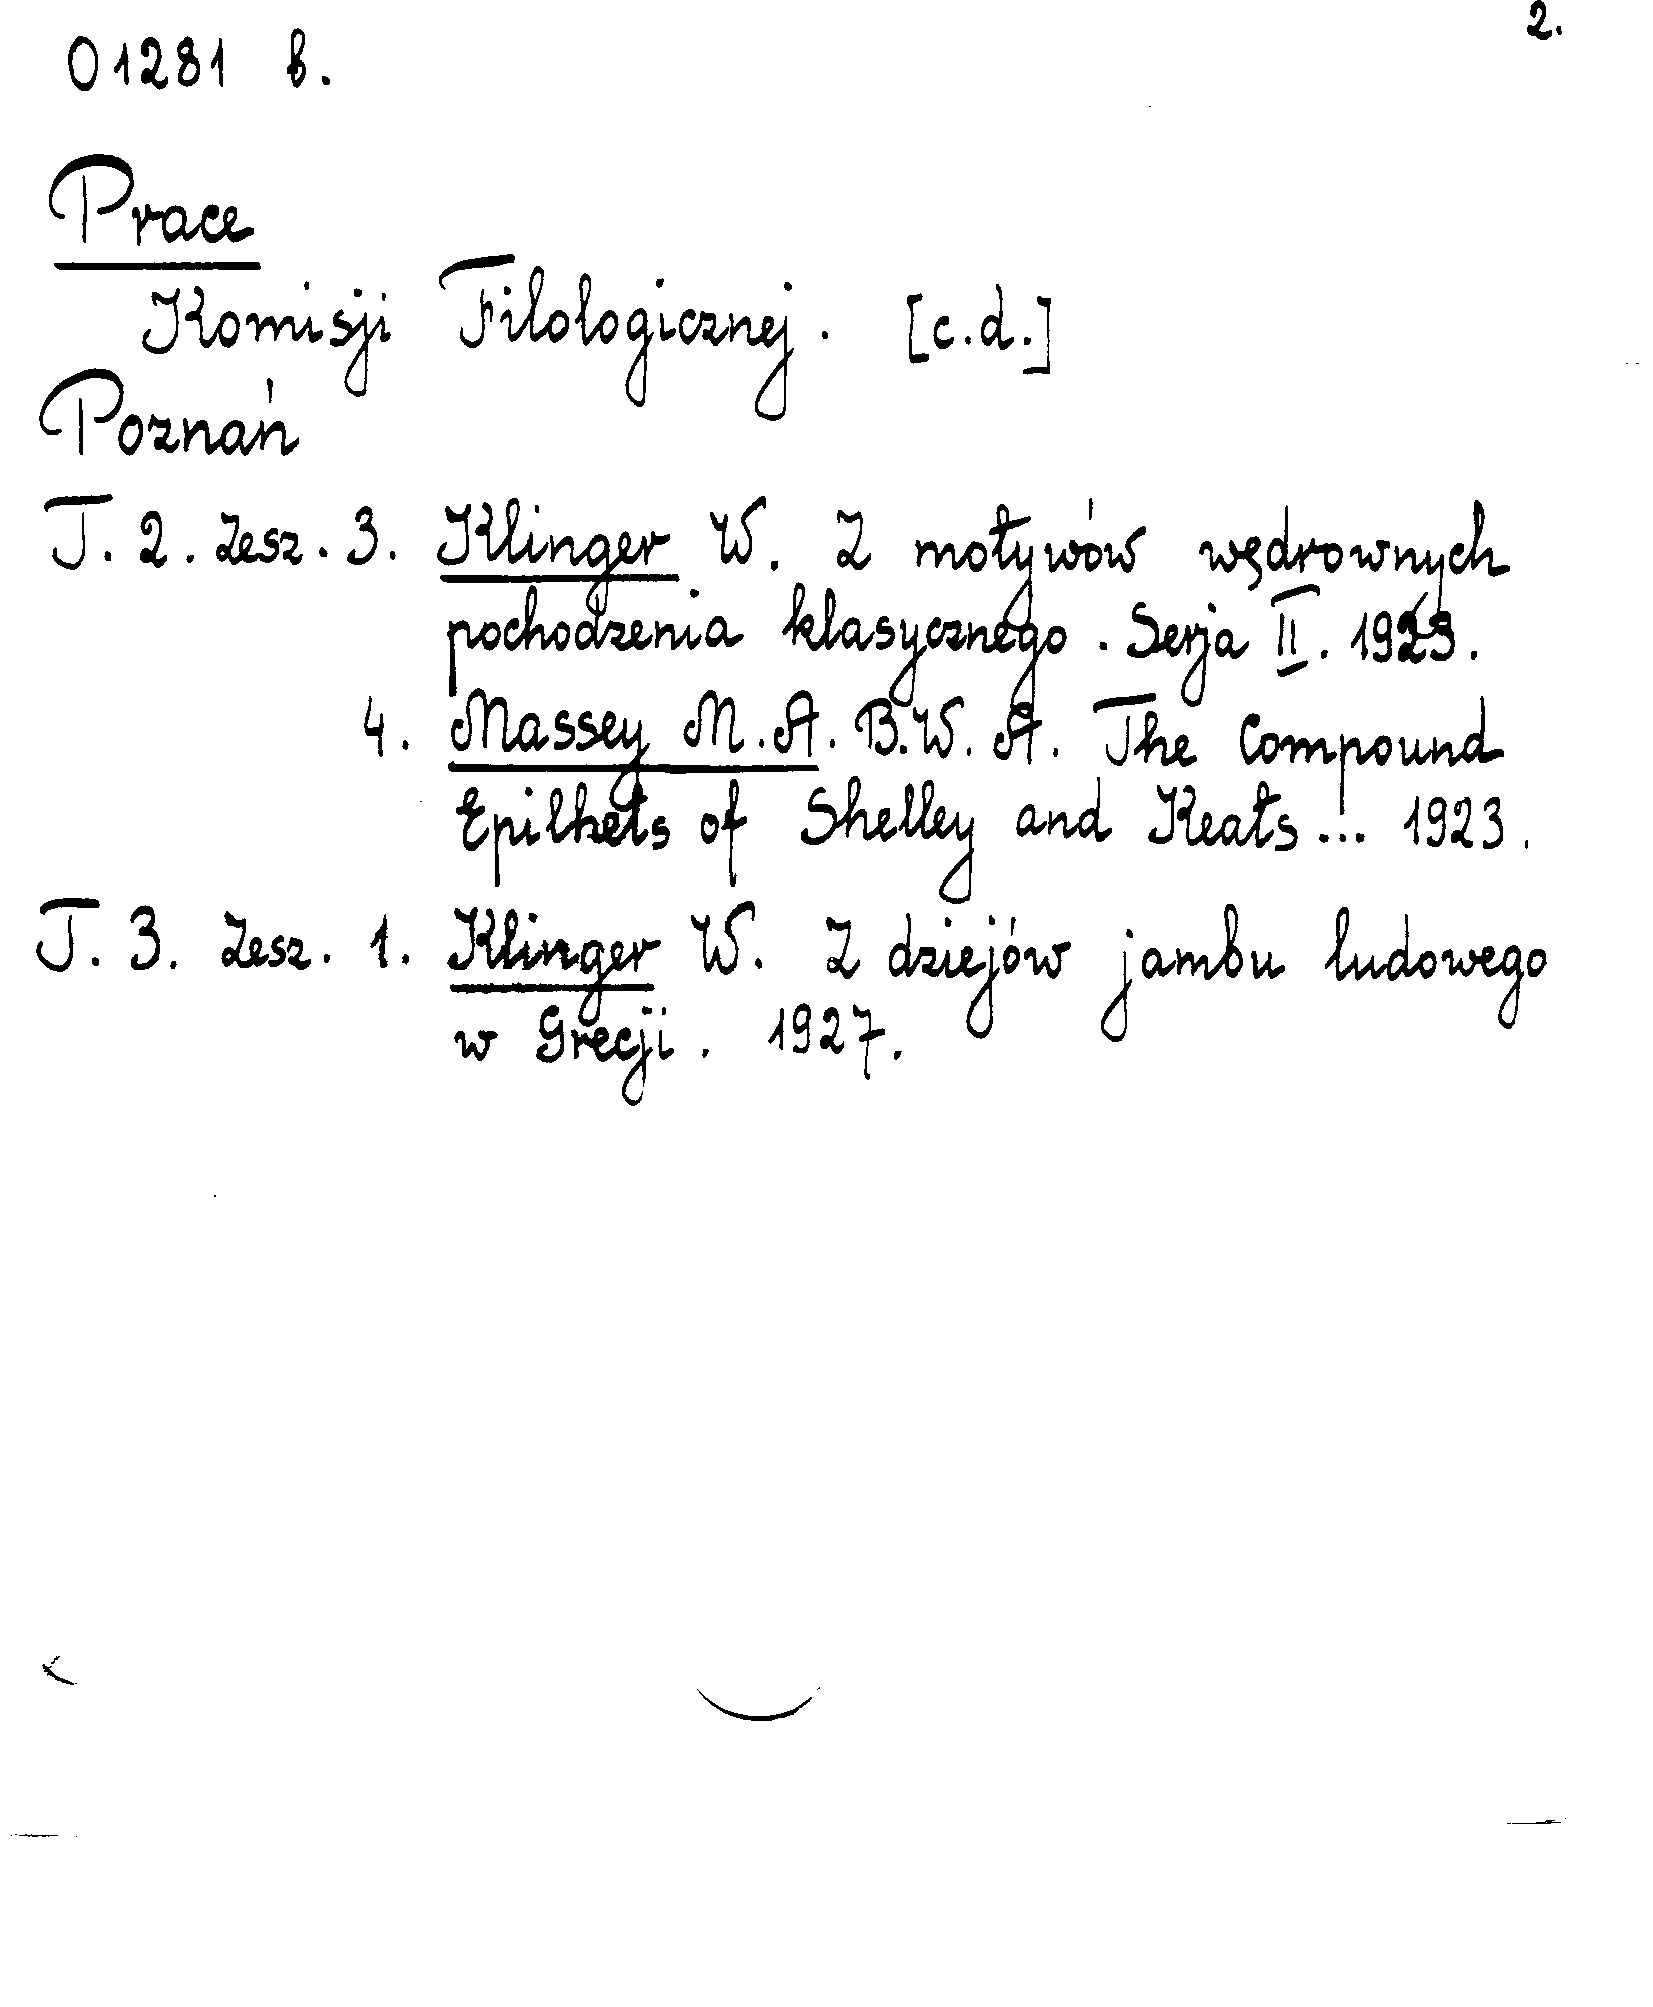 2.
01281 b.
Prace
Komisji Filologicznej. [c.d.]
Poznań
T. 2. Zesz. 3. Klinger W. Z motywów wędrownych
pochodzenia klasycznego. Serja II. 1923.
4. Massey M.A. B.W.A. The Compound
Epithets of Shelley and Keats... 1923.
T. 3. Zesz. 1. Klinger W. Z dziejów jambu ludowego
w Grecji. 1927.